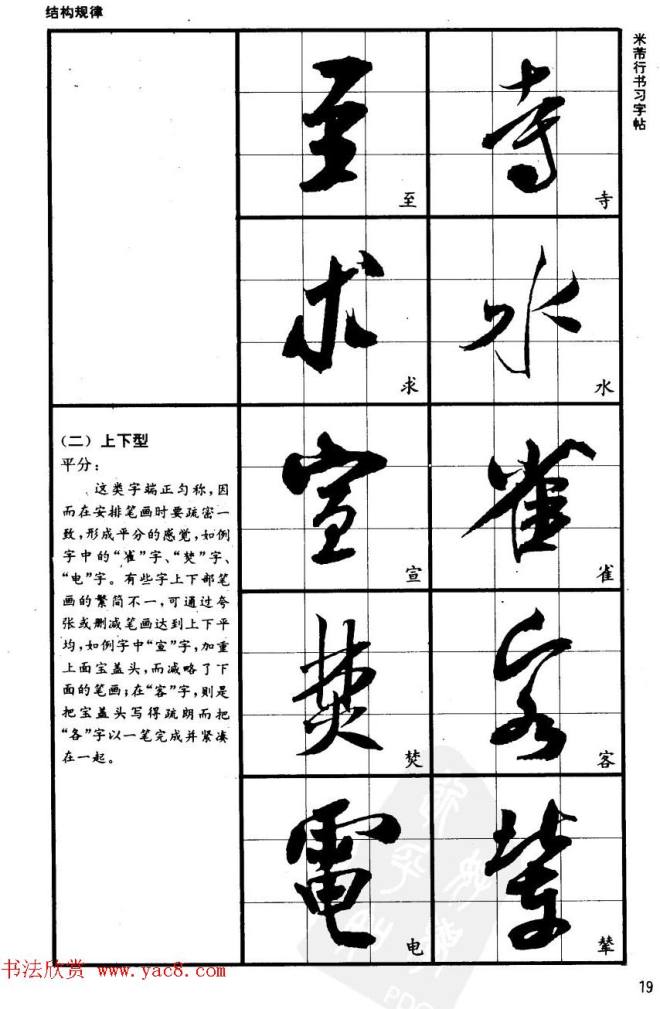 结构规律
米芾行书习字帖
至
寺
求
水
(二)上下型
平分:
这类字端正匀称,因
而在安排笔画时要疏密一
致,形成平分的感觉,如例
字中的“雀”字、“焚”字、
“电”字。有些字上下部笔
画的繁简不一,可通过夸
张或删减笔画达到上下平
均,如例字中“宣”字,加重
上面宝盖头,而减略了下
面的笔画;在“客”字,则是
把宝盖头写得疏朗而把
“各”字以一笔完成并紧凑
在一起。
宣
雀
焚
客
電
电
辇
书法欣赏 www.yac8.com
19